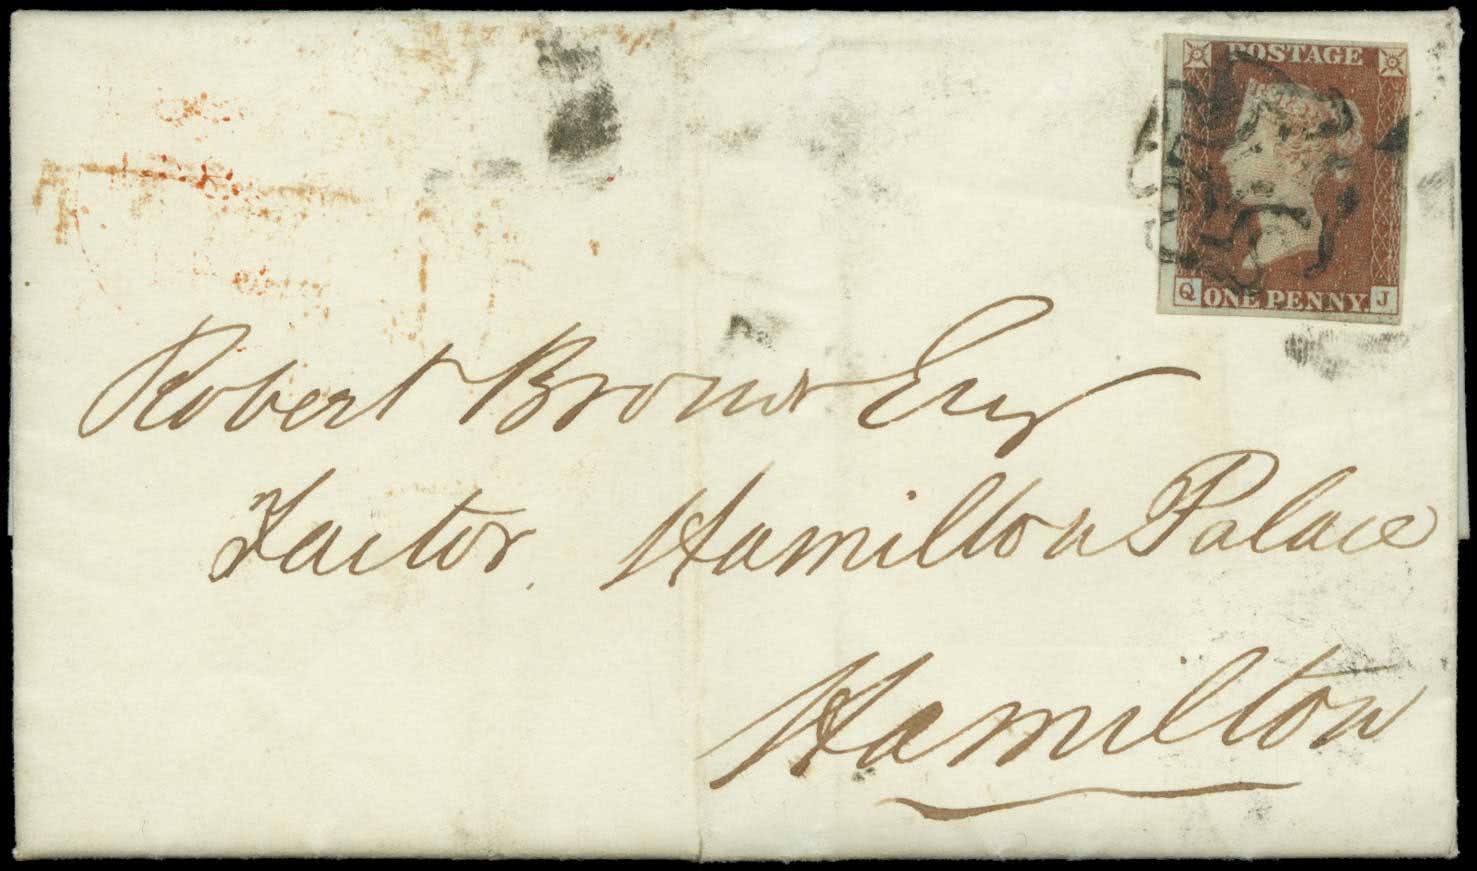 POSTAGE
Q ONE PENNY. J
Robert Brown Esq
Factor. Hamilton Palace
Hamilton